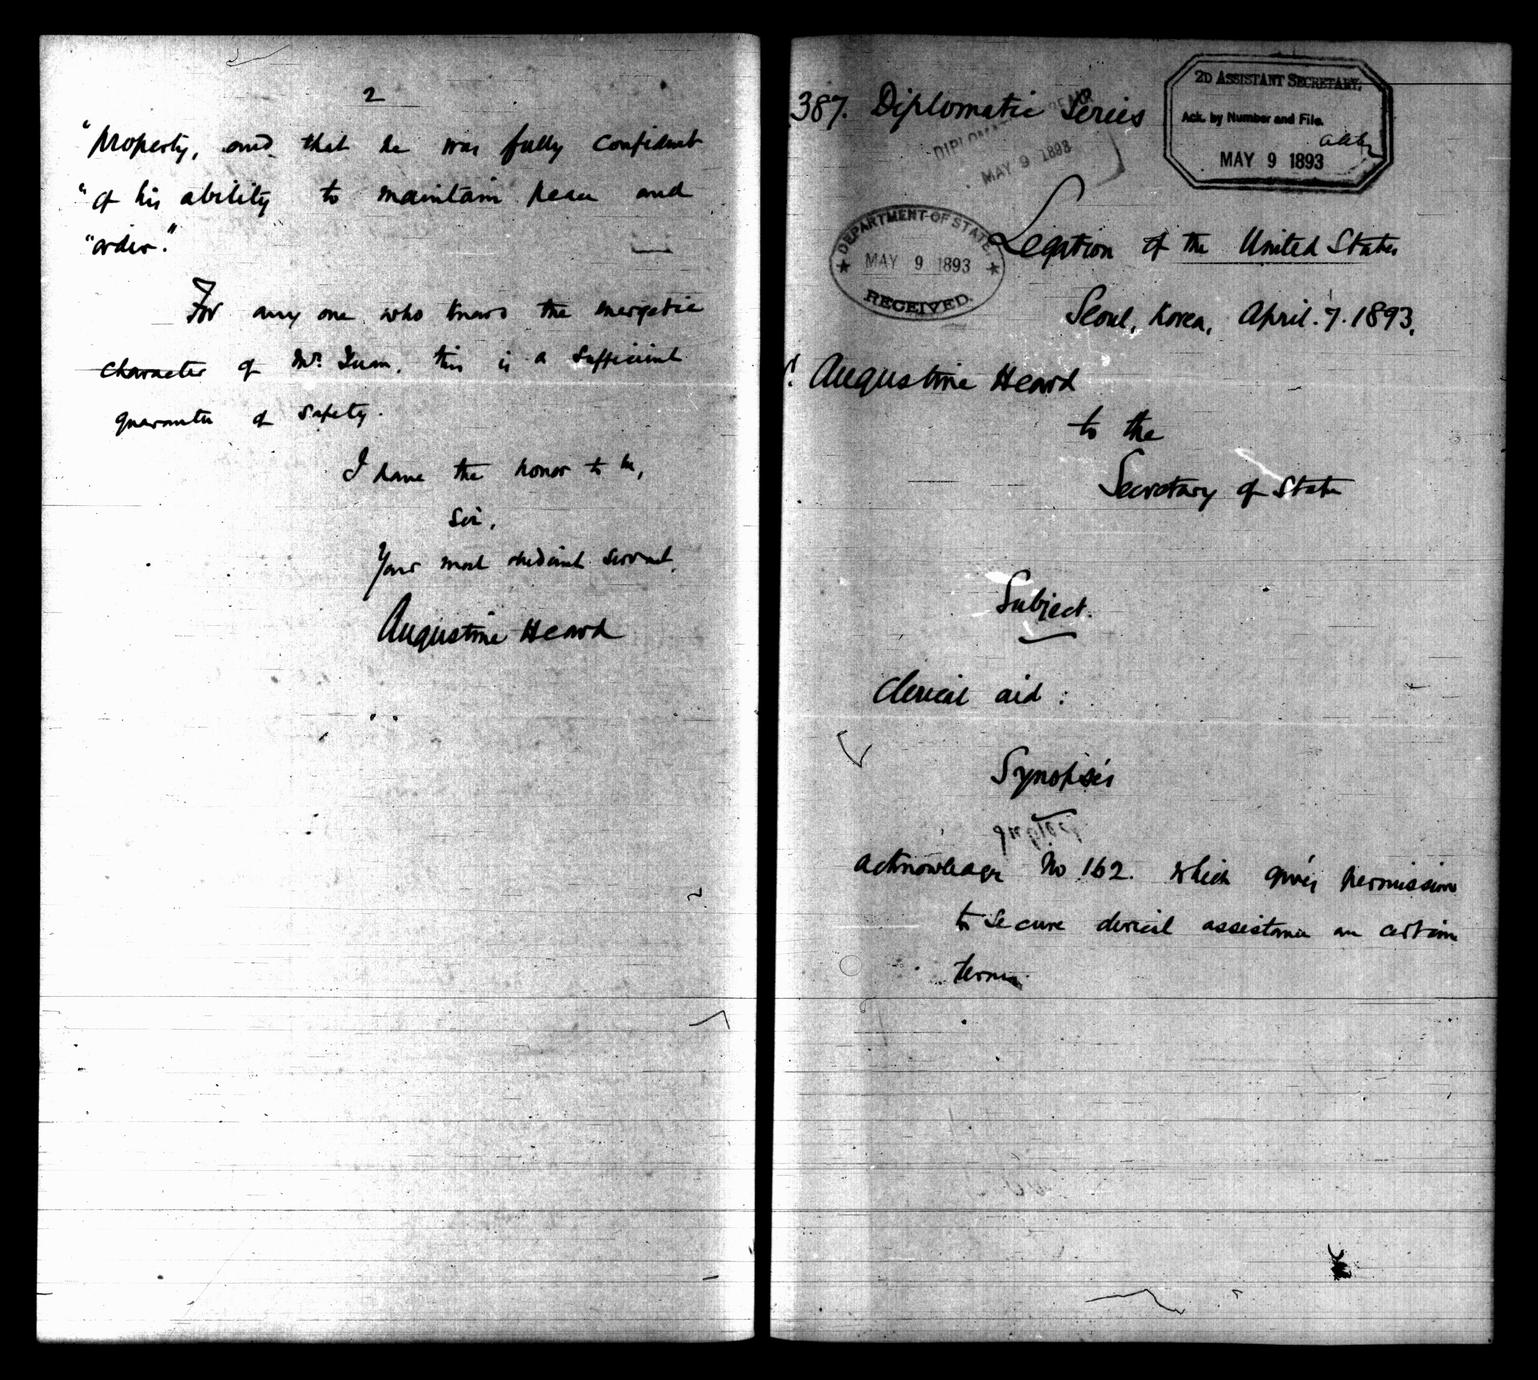 2
"property, and that he was fully confident
"of his ability to maintain peace and
"order."
For any one who knows the energetic
character of Mr. Yuan, this is a sufficient
guarantee of safety.
I have the honor to be,
Sir,
Your most obedient servant,
Augustine Heard
387. Diplomatic Series
2D ASSISTANT SECRETARY.
Ack. by Number and File.
MAY 9 1893
DIPLOMATIC BUREAU
MAY 9 1893
DEPARTMENT OF STATE
MAY 9 1893
RECEIVED.
Legation of the United States
Seoul, Korea, April. 7. 1893.
Augustine Heard
to the
Secretary of State
Subject.
Clerical aid :
Synopsis
acknowledge No 162. which gives permission
to secure clerical assistance on certain
terms.